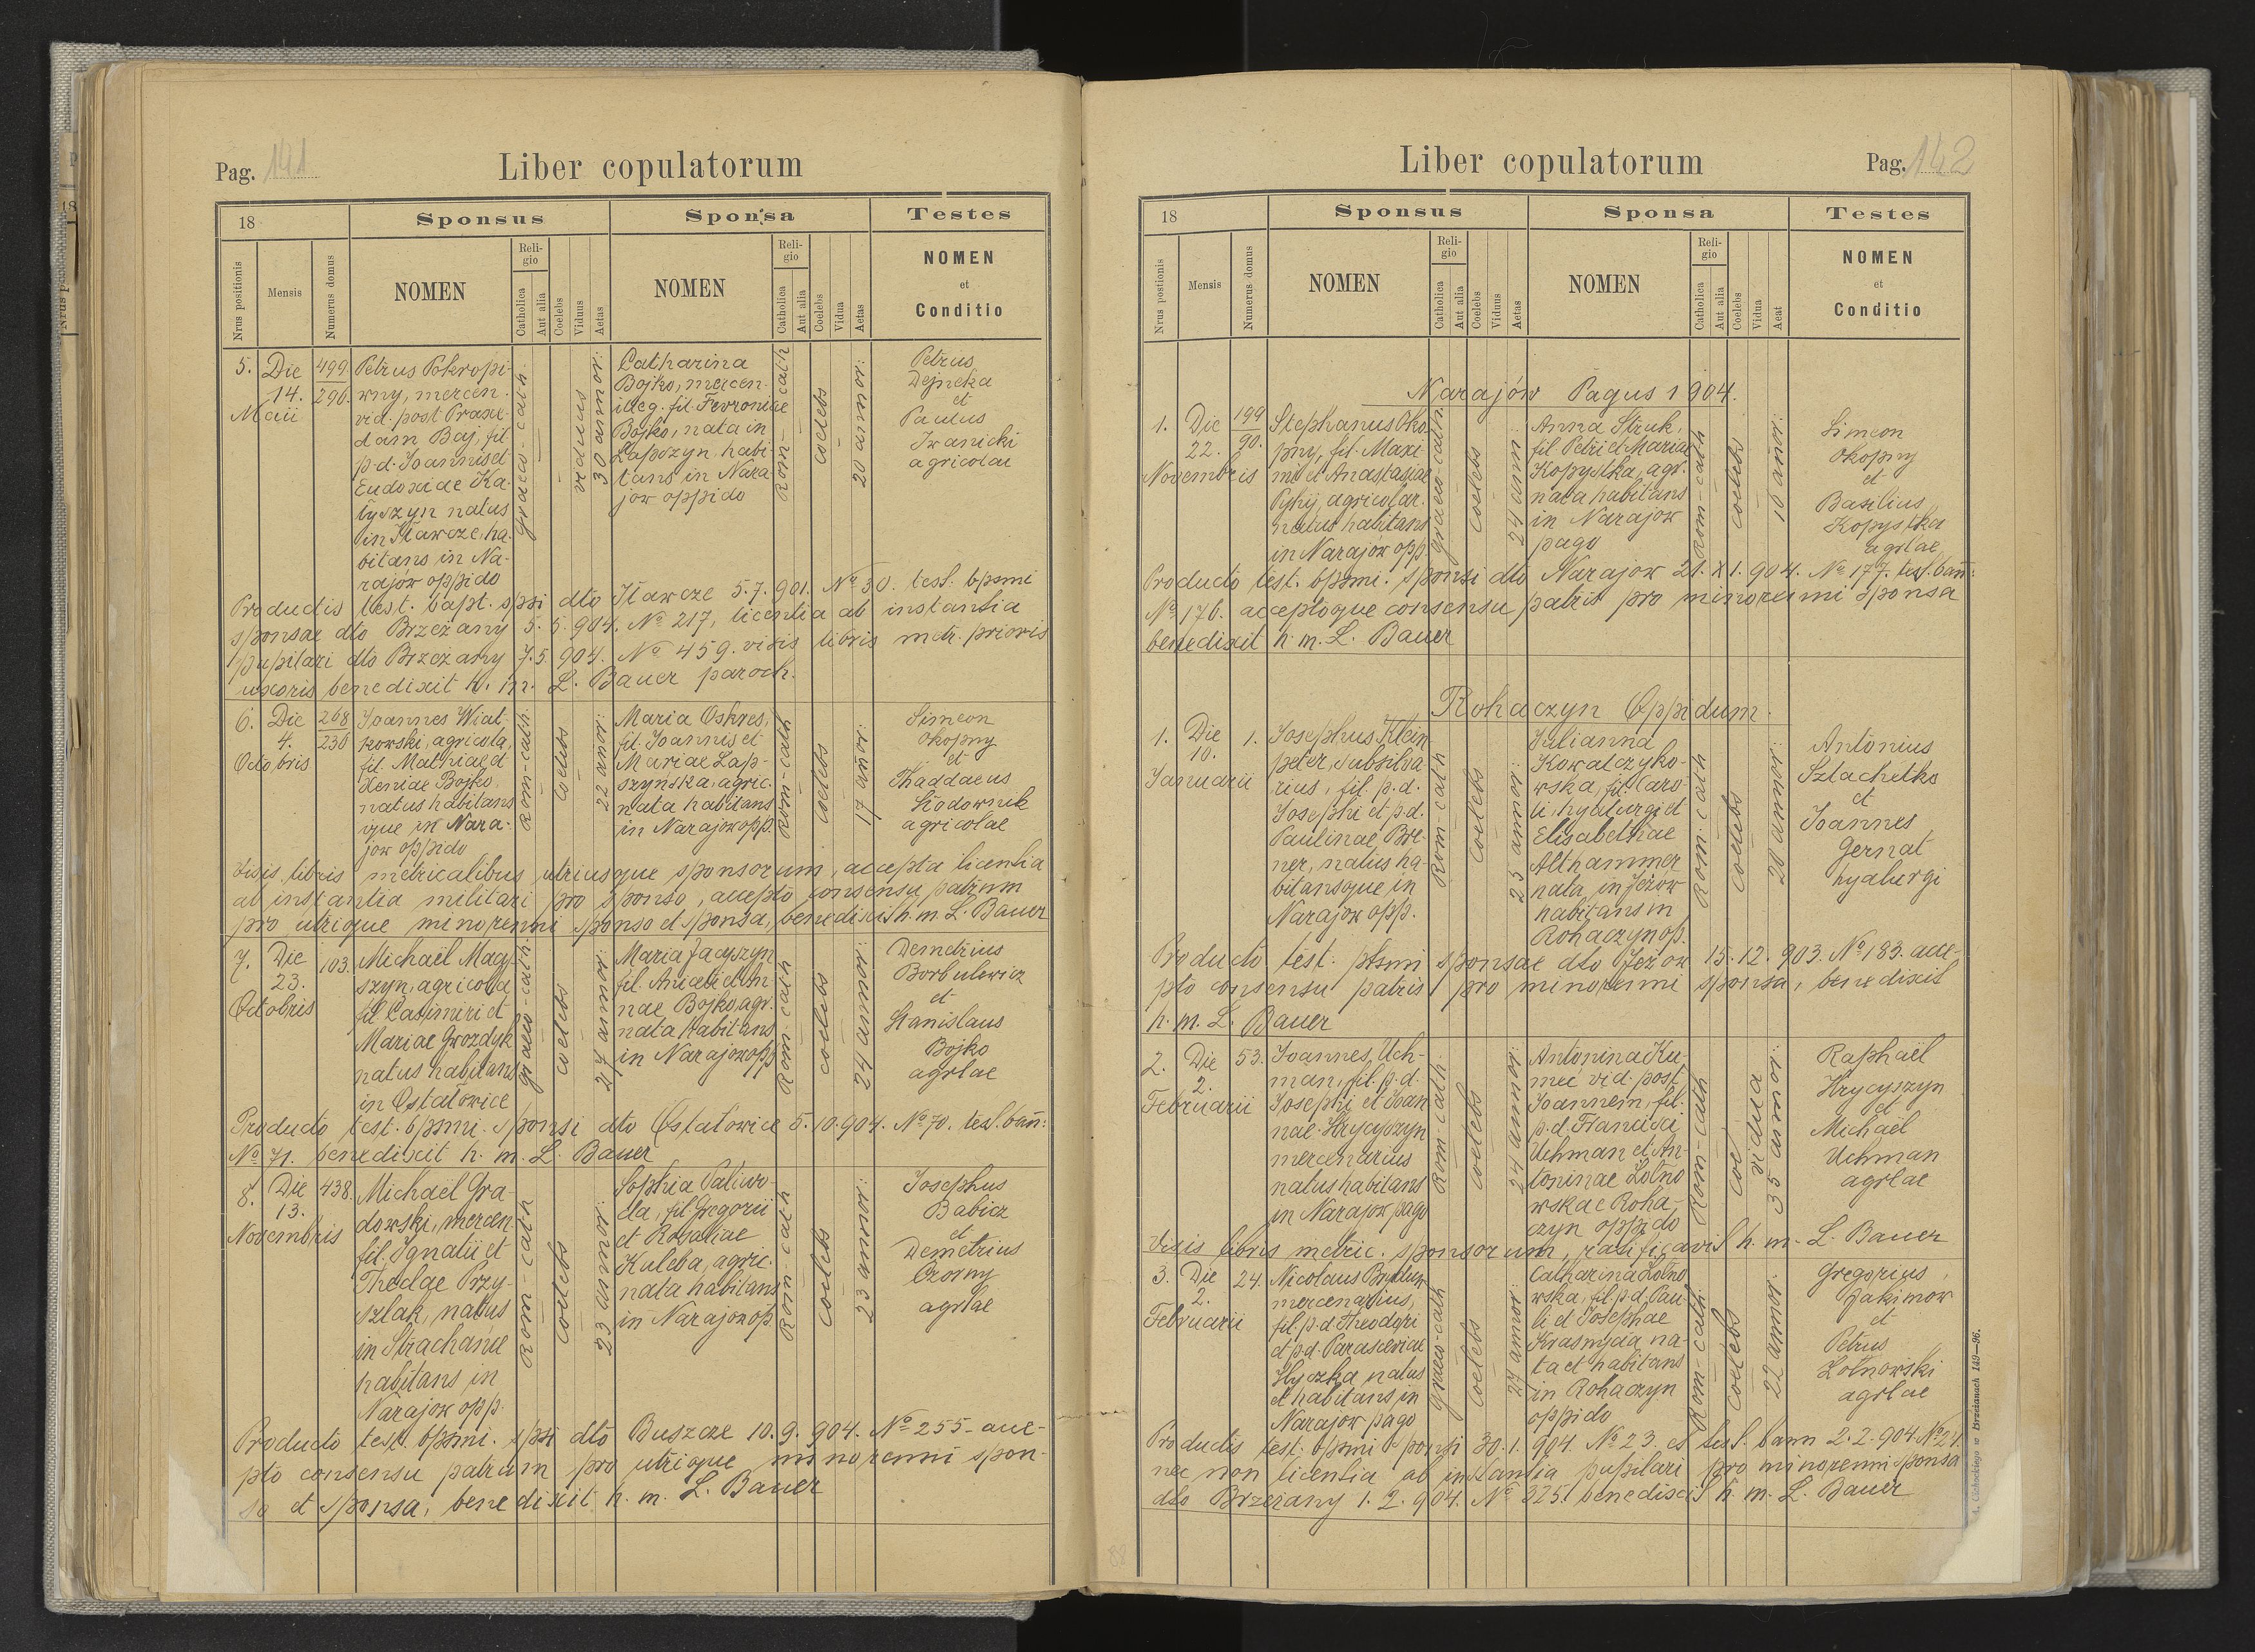 Pag. 141
Liber copulatorum
18
Sponsus
Sponsa
Testes
Nrus positionis
Mensis
Numerus domus
NOMEN
Religio
Catholica
Aut alia
Coelebs
Viduus
Aetas
NOMEN
Religio
Catholica
Aut alia
Coelebs
Vidua
Aetas
NOMEN
et
Conditio
5.
Die
14.
Maii
499
296.
Petrus Pokropi-
wny, mercen.
vid. post Praxe-
dam Baj, fil.
p.d. Joannis et
Eudoxiae Ka-
natus
in Iławcze, ha-
bitans in Na-
rajów oppido
Graeco-cath.
viduus
30 annor:
Catharina
Bojko, mercen.
illeg. fil. Fevroniae
Bojko, nata in
Łapszyn, habi-
tans in Nara
jow oppido
Rom-cath
coelebs
20 annor:
Petrus
Dejneka
et
Paulus
Iwanicki
agricolae
Productis test. bapt. spsi dto Iławcze 5.7.901. No 30. test. bpsmi
sponsae dto Brzeżany 5.5.904. No 217, licentia ab instantia
pupilari dto Brzeżany 7.5.904. No 459. visis libris metr. prioris
uxoris benedixit h. m. L. Bauer paroch.
6.
Die
4.
Octobris
268
230
Joannes Wiat-
kowski, agricola,
fil. Mathiae et
Xeniae Bojko,
natus habitans
que in Nara-
jow oppido
Rom-cath
coelebs
22 anor:
Maria Oskres,
fil. Joannis et
Mariae Łap-
szyńska, agric.
nata habitans
in Narajow opp.
Rom-cath
coelebs
17 anor:
Simeon
Okopny
et
Thaddaeus
Siodownik
agricolae
Visis libris metricalibus utriusque sponsorum, accepta licentia
ab instantia militari pro sponso, accepto consensu patrum
pro utrique minorenni sponso et sponsa, benedixit h. m L. Bauer
7.
Die
23.
Octobris
103.
Michaël Mag-
szyn, agricola
fil. Casimiri et
Mariae Gwozdyk
natus habitans
in Ostałowice
graeco-cath
coelebs
27 annor:
Maria Jacyszyn
fil. Aniceti et An
nae Bojko, agr.
nata habitans
in Narajow opp
Rom-cath
coelebs
24 annor:
Demetrius
Borbulewicz
et
Stanislaus
Bojko
agrlae
Producto test. bpsmi. sponsi dto Ostałowice 5.10.904. No 70. test. bañ:
No 71. benedixit h. m. L. Bauer
8.
Die
13.
Novembris
438.
Michaël Gra-
dowski, mercen.
fil. Ignatii et
Theclae Przy-
szlak, natus
in
habitans in
Narajow opp.
Rom-cath
coelebs
23 annor:
Sophia Paliwo-
da, fil. Gregorii
et Rosaliae
Kuleba, agric.
nata habitans
in Narajow op.
Rom-cath
coelebs
23 annor:
Josephus
Babicz
et
Demetrius
Czorny
agrlae
Producto test. bpsmi. spsi dto Buszcze 10.9.904. No 255- acce-
pto consensu patrum pro utrique minorenni spon-
so et sponsa, benedixit h. m. L. Bauer
Liber copulatorum
Pag. 142
18
Sponsus
Sponsa
Testes
Nrus postionis
Mensis
Numerus domus
NOMEN
Religio
Catholica
Aut alia
Coelebs
Viduus
Aetas
NOMEN
Religio
Catholica
Aut alia
Coelebs
Vidua
Aeat
NOMEN
et
Conditio
Narajów Pagus 1904.
1.
Die
22.
Novembris
199
90.
Stephanus Oko
pny, fil. Maxi
mi et Anastasiae
agricolar.
natus habitans
in Narajów opp.
graeco-cath.
coelebs
24 ann
Anna Struk,
fil. Petri et Mariae
Kopystka, agr.
nata habitans
in Narajow
pago
Rom-cath
coelebs
Simeon
Okopny
et
Basilius
Kopystka
agrlae
Producto test. bpsmi. sponsi dto Narajow 21.XI.904. No 177. test. bañ:
No 176. acceptoque consensu patris pro minorenni sponsa
benedixit h. m. L. Bauer
Rohaczyn Oppidum.
1.
Die
10.
Januarii
1.
Josephus Klein
peter, subsilva
rius, fil p.d.
Josephi et p.d.
Paulinae Bre-
ner, natus ha-
bitansque in
Narajow opp.
Rom-cath
coelebs
25 annor:
Julianna
Kowalczyko-
wska, fil. Caro-
li, hyalurgi et
Elisabethae
Althammer
nata in Jeżow
habitans in
Rohaczyn op.
Rom-cath
coelebs
20 annor:
Antonius
Szlachetko
et
Joannes
Gernat
hyalurgi
Producto test. ptsmi sponsae dto Jeżow 15.12.903. No 183. acce-
pto consensu patris pro minorenni sponsa, benedixit
h. m. L. Bauer
2.
Die
2.
Februarii
53.
Joannes Uch-
man, fil. p.d.
Josephi et Joan
nae Hrycyszyn
mercenarius
natus habitans
in Narajow pago
Rom-cath
coelebs
24 annor:
Antonina Ku-
mec vid. post
Joannem, fil.
p.d. Francisci
Uchman et An-
toninae Łotno
wska e Roha-
czyn oppido
Rom-cath
coe
vidua
35 annor:
Raphaël
Hrycyszyn
et
Michaël
Uchman
agrlae
Visis libris metric. sponsorum, ratificavit h. m. L. Bauer
3.
Die
2.
Februarii
24.
Nicolaus
mercenarius,
fil. p.d. Theodori
et p.d. Parasceviae
Hyczka natus
et habitans in
Narajow pago
graeco-cath
coelebs
27 annor:
Catharina Łotno
wska, fil. p.d. Pau-
li et Josephae
na-
ta et habitans
in Rohaczyn
oppido
Rom-cath.
coelebs
22 annor.
Gregorius
Jakimow
et
Petrus
Łotnowski
agrlae
Productis test. bpsmi sponsi 30.1.904. No 23. et test. bann 2.2.904. No 24.
nec non licentia ab instantia pupilari pro minorenni sponsa
dto Brzeżany 1.2.904. No 325. benedixit h. m. L. Bauer
149—96.